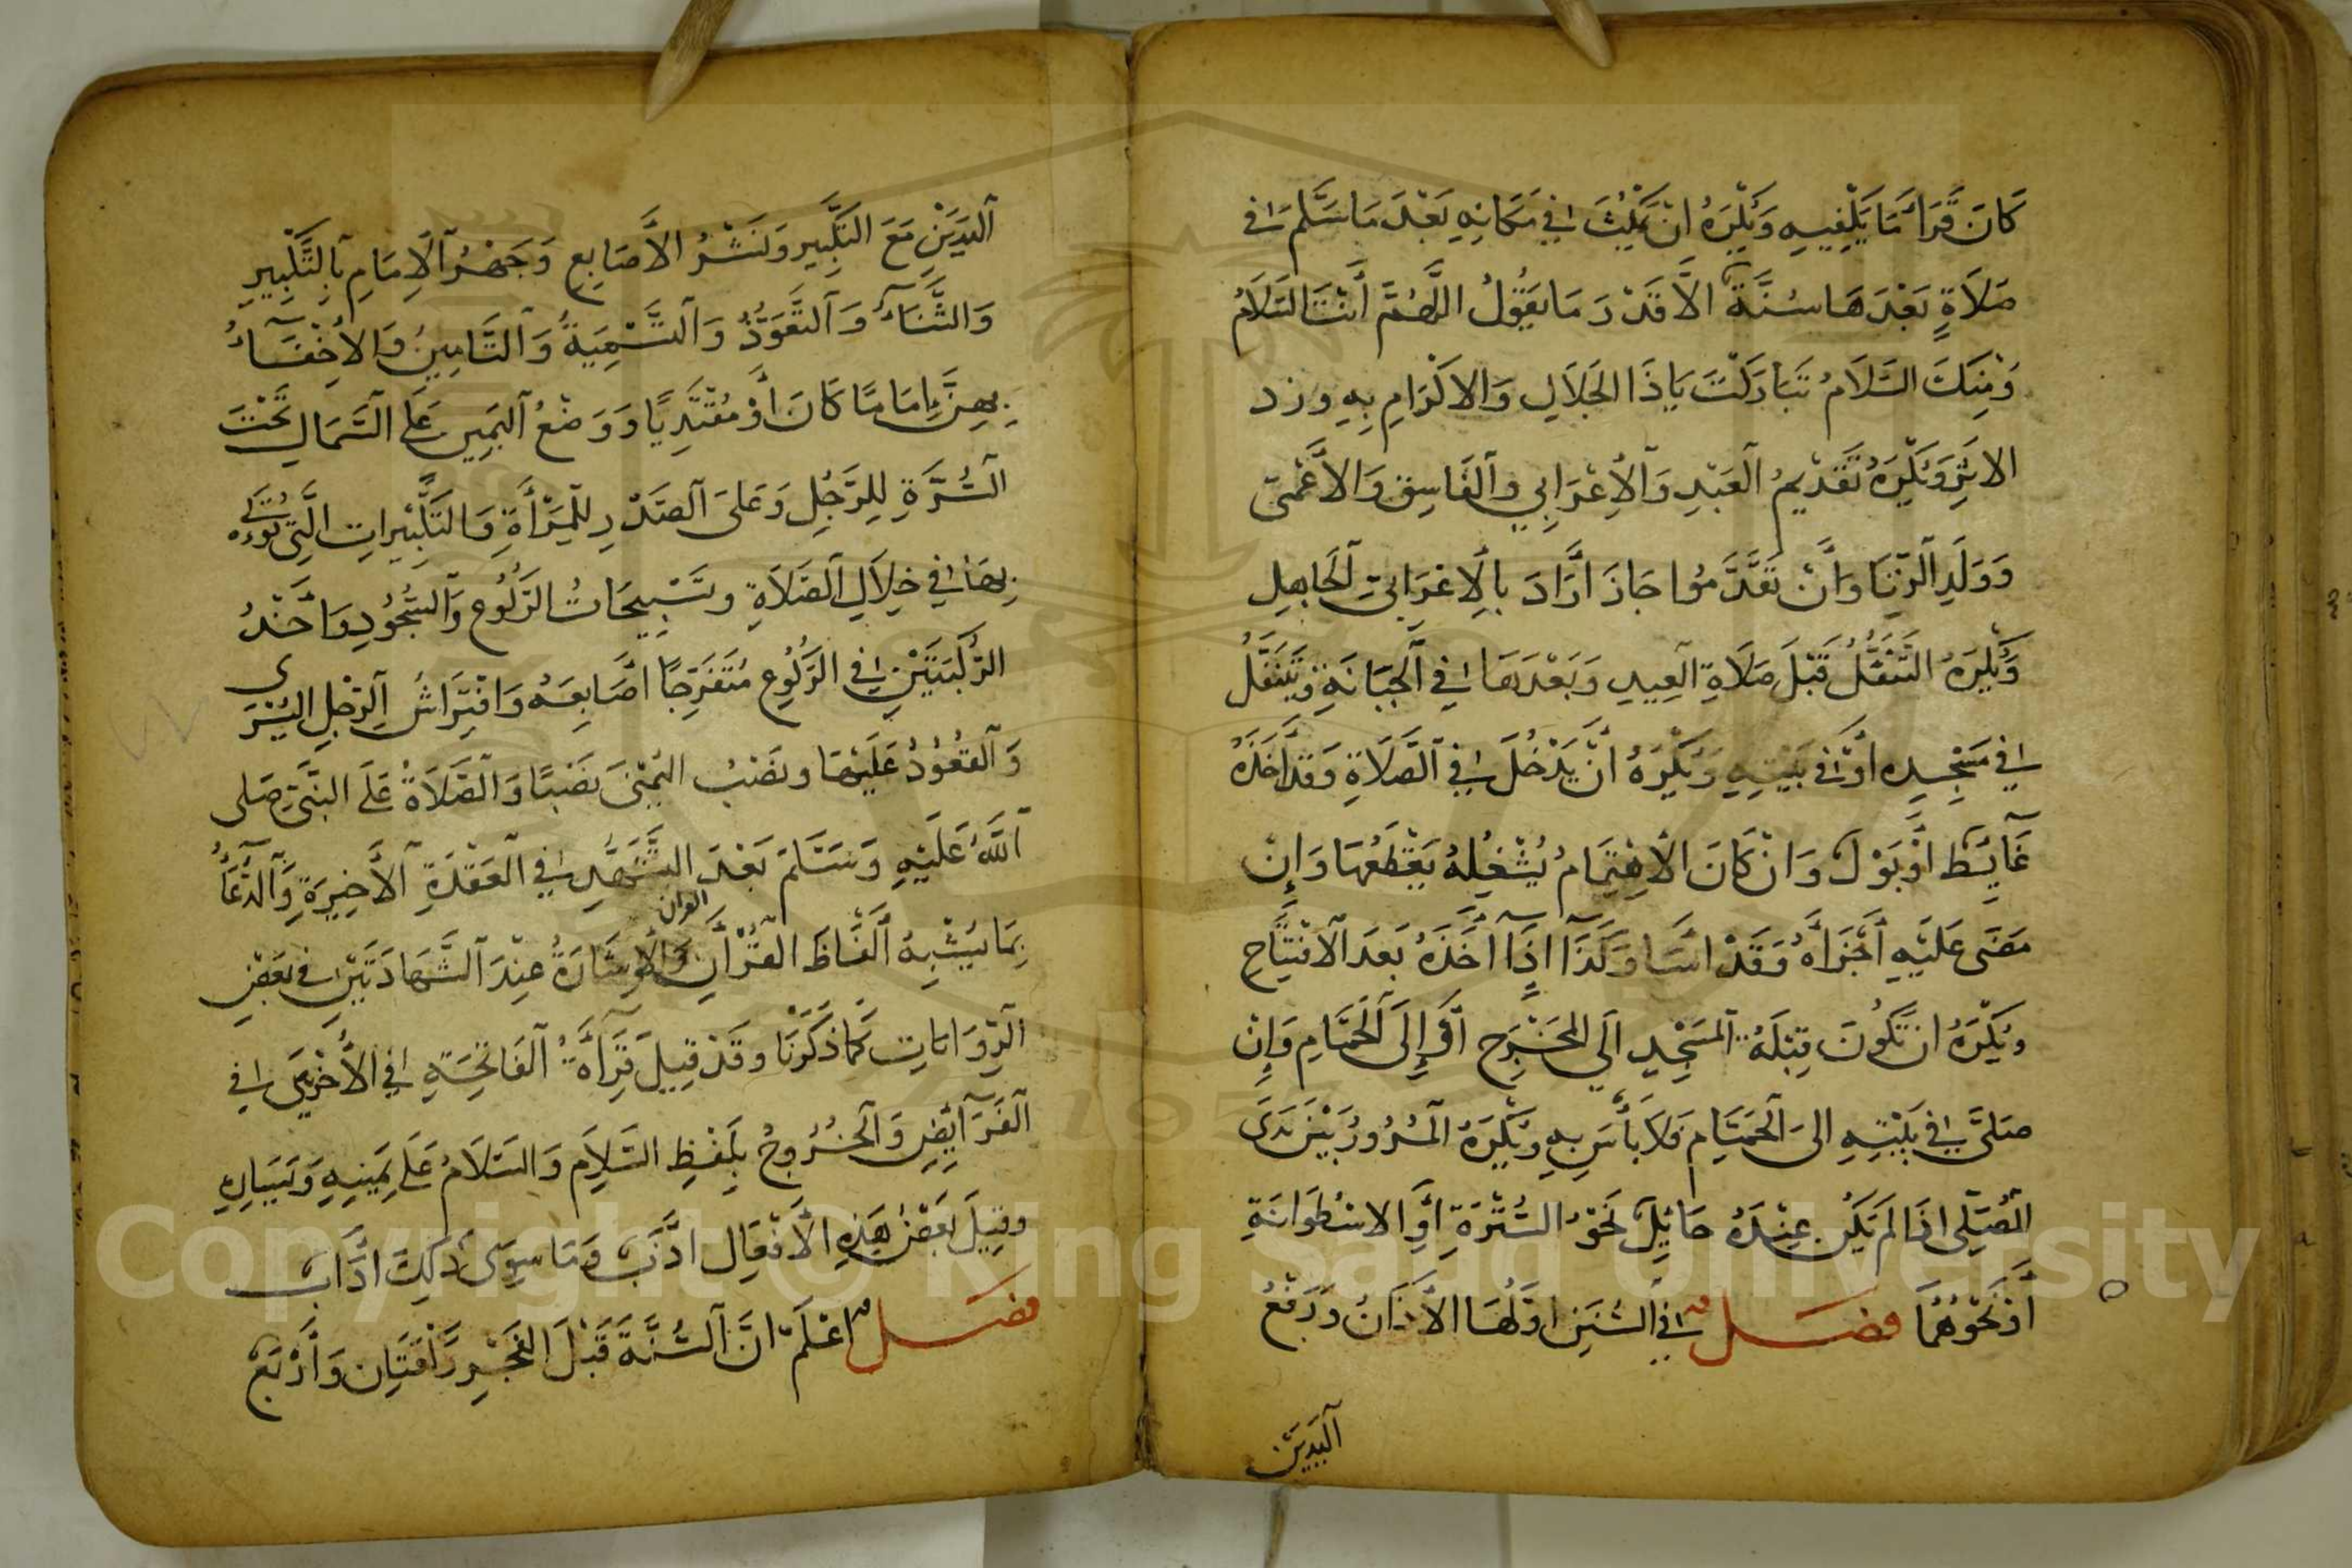 كَانَ قَرَأَ مَا يَكْفِيهِ وَيُكْرَهُ انْ يَمْكُثَ فِي مَكَانِهِ بَعْدَ مَا سَلَّمَ في
صَلَاةٍ بَعْدَهَا سُنَّةٌ الَّا قَدْرَ مَا يَقُولُ اللَّهُمَّ أَنْتَ السَّلَامُ
وَمِنْكَ السَّلَامُ تَبَارَكْتَ يَاذَا الجَلَالِ وَالاكْرَامِ بِهِ ورد
الاثَرِ وَيُكْرَهُ تَقْدِيمُ العَبْدِ وَالْأَعْرَابِي وَالفَاسِقِ وَالأَعْمَى
وَوَلَدِ الزِّنَا وَانْ تَقَدَّمُوا جَازَ أَرَادَ بِالْاعْرَابِيِّ الجَاهِل
وَيُكْرَهُ التَّنَفُّلُ قَبْلَ صَلَاةِ العِيدِ وَبَعْدَهَا فِي الجَبَّانَةِ وَيَتَنَفَّلُ
فِي مَسْجِدِهِ أَوْ فِي بَيْتِهِ وَيُكْرَهُ انْ يَدْخُلَ فِي الصَّلَاةِ وَقَدْ اخَذَهُ
غَايِطٌ اوْ بَوْلٌ وَانْ كَانَ الاهْتِمَامُ يُشْغِلُهُ يَقْطَعُهَا وَإِنْ
مَضَى عَلَيْهِ أَجْزَأَهُ وَقَدْ اسَاءَ وَكَذَا اذَا أَخَذَهُ بَعْدَ الافْتِتَاحِ
وَيُكْرَهُ انْ تَكُونَ قِبْلَةُ المَسْجِدِ الَي المَخْرَجِ أَوْ إِلَى الحَمَّامِ وَإِنْ
صَلَّى فِي بَيْتِهِ الى الحَمَّامِ فَلَا بَأْسَ بِهِ وَيُكْرَهُ المُرُورُ بَيْنَ يَدَىِ
المُصَلِّى اذَا لَمْ يَكُنْ عِنْدَهُ حَايِلٌ نَحْوُ السُّتْرَةِ أَوِ الاسْطُوَانَةِ
أَوْ نَحْوُهُمَا فصل فِي السُّنَنِ اوَّلُهَا الأَذَانُ وَرَفْعُ
اليَدَيْنِ
اليَدَيْنِ مَعَ التَكْبِيرِ وَنَشْرُ الأَصَابِعِ وَجَهْرُ الاِمَامِ بِالتَّكْبِيرِ
وَالثَّنَاءُ وَالتَّعَوُّذُ وَالتَّسْمِيَةُ وَالتَّامِينُ وَالاخْفَاءُ
بِهِنَّ امَامًا كَانَ أَوْ مُقْتَدِيًا وَوَضْعُ اليَمِينِ عَلَى الشَّمَالِ تَحْتَ
السُّرَّةِ لِلرَّجُلِ وَعَلَى الصَّدْرِ لِلْمَرْأَةِ وَالتَكْبِيرَاتِ الَّتِى يُؤْتَى
بِهَا فِي خِلَالِ الصَّلَاةِ وتَسْبِيحَاتُ الرُّكُوعِ وَالسُّجُودِ وَاخْذُ
الرُّكْبَتَيْنِ فِي الرُّكُوعِ مُتَفَرِّجًا اصَابِعَهُ وَافْتِرَاشُ الرِّجْلِ اليُسْرَى
وَالقُعُودُ عَلَيْهَا ونَصْبُ اليُمْنَى نَصْبًا وَالصَّلَاةُ عَلَى النَّبِيِّ صَلى
اللَّهُ عَلَيْهِ وَسَلَّمَ بَعْدَ التَّشَهُّدِ فِي العَقْدَةِ الأَخِيرَةِ وَالدُّعَاءُ
بِمَا يُشْبِهُ أَلْفَاظَ القُرْأَنِ القران وَالْاشَارَةُ عِنْدَ الشَّهَادَتَيْنِ فِى بَعْضِ
الرِّوَايَاتِ كَمَا ذَكَرْنَا وقَدْ قِيلَ قِرَأَةُ الفَاتِحَةِ فِي الأُخْرَيَيْنِ فِي
الفَرَايِضِ وَالخُرُوجُ بِلَفْظِ السَّلَامِ وَالسَّلَامُ عَلَى يَمِينِهِ وَيَسَارِهِ
وقِيلَ بَعْضُ هَذِهِ الأَفْعَالِ ادَبٌ وَمَا سِوَى ذَلِكَ ادَابٌ
فصل اعْلَمْ انَّ السُّنَّةَ قَبْلَ الفَجْرِ رَكْعَتَانِ وَأَرْبَعٌ